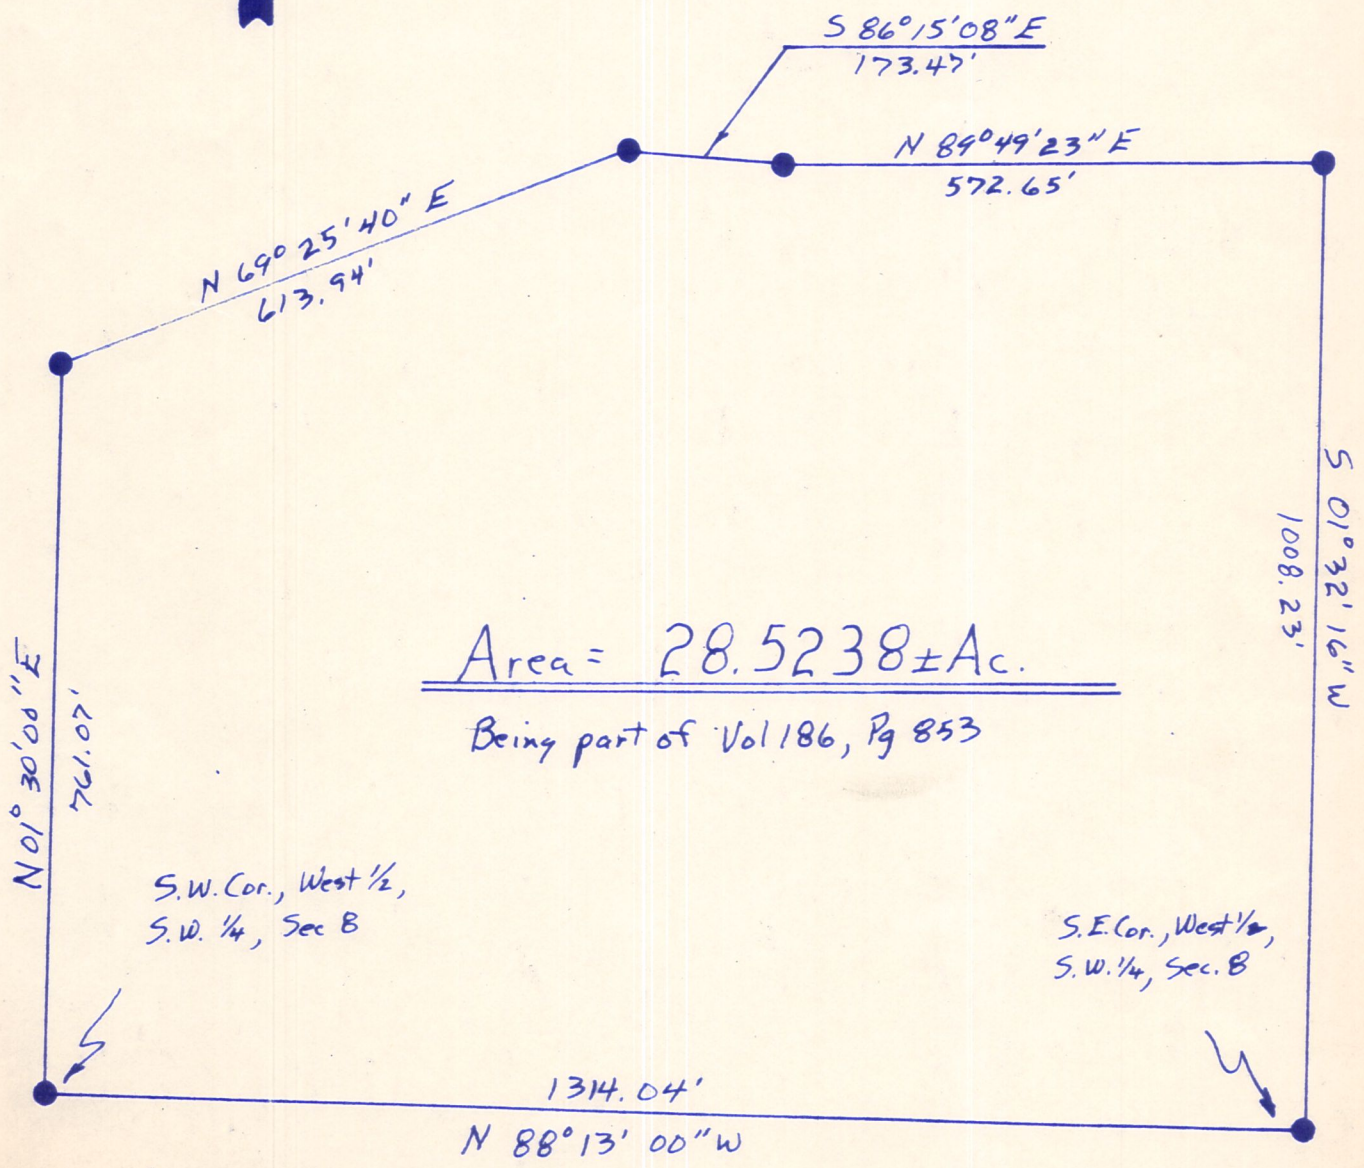 S 86°15'08"E
173.47'
N 89°49'23"E
572.65'
N 69°25'40"E
613.94'
S 01°32'16"W
1008.23'
Area = 28.5238±Ac.
Being part of Vol 186, Pg 853
N 01°30'00"E
761.07'
S.W. Cor., West 1/2,
S.W. 1/4, Sec 8
S.E. Cor., West 1/2,
S.W. 1/4, Sec. 8
1314.04'
N 88°13'00"W